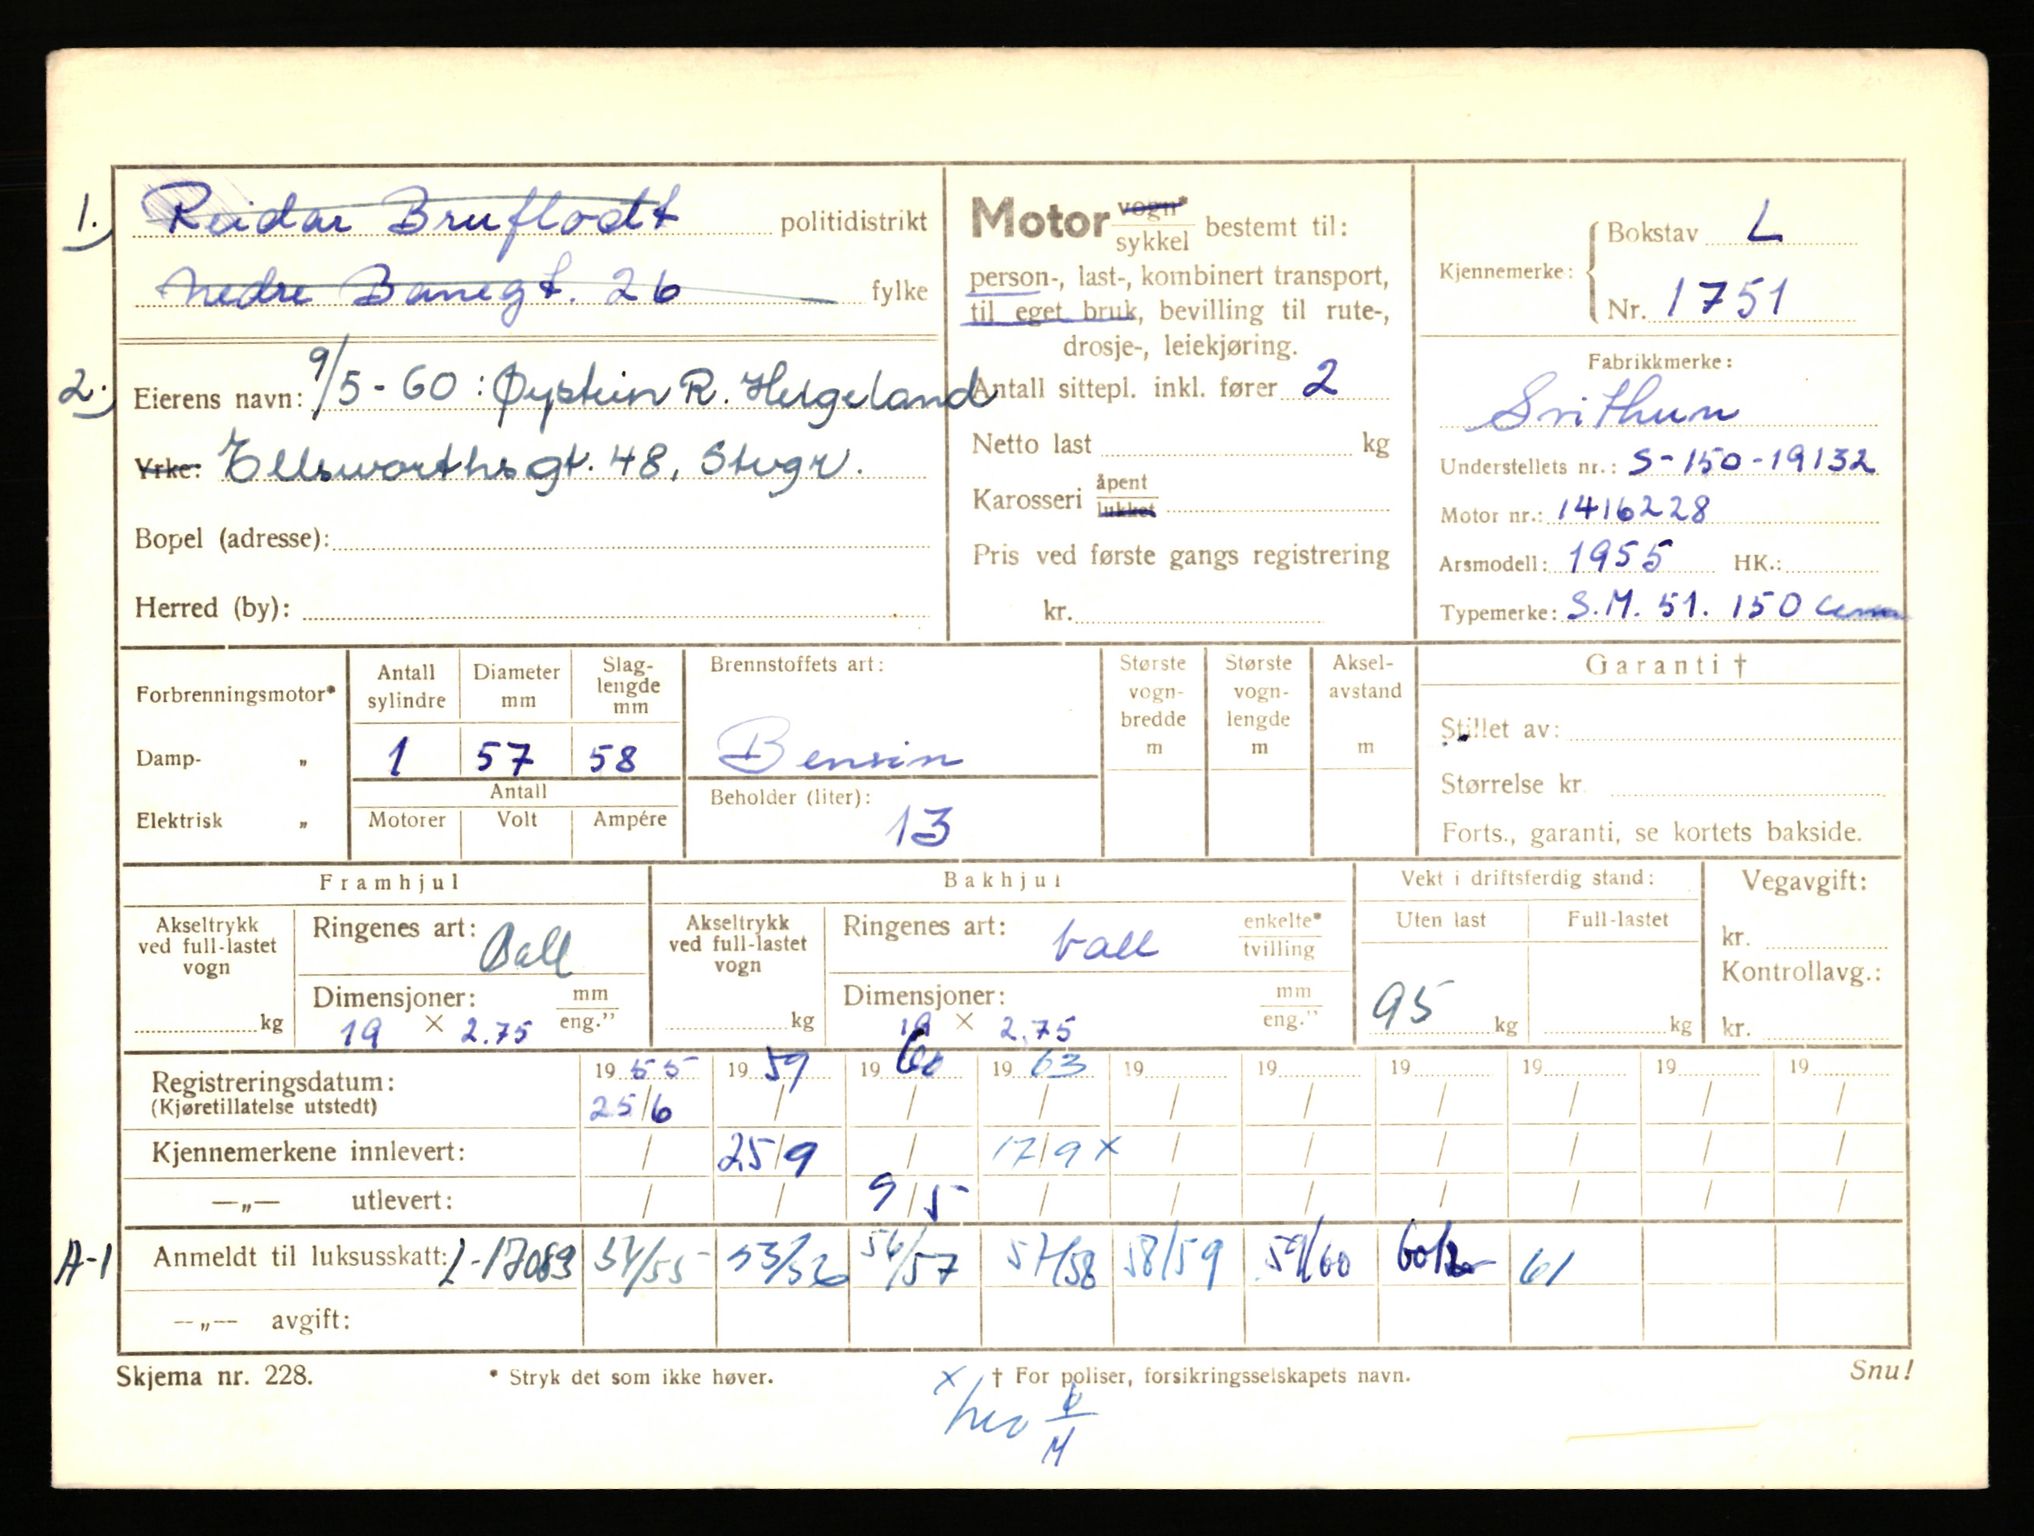 1. Reidar Bruflodt politidistrikt
Nedre Banegt. 26 fylke
2. Eierens navn: 9/5-60: Øystein R. Helgeland
Yrke: Ellsworthsgt. 48, Stvgr.
Bopel (adresse):
Herred (by):
Motor vogn* sykkel bestemt til:
person-, last-, kombinert transport,
til eget bruk, bevilling til rute-,
drosje-, leiekjøring.
Antall sittepl. inkl. fører 2
Netto last kg
Karosseri åpent lukket
Pris ved første gangs registrering
kr.
Kjennemerke: Bokstav L
Nr. 1751
Fabrikkmerke:
Svithun
Understellets nr.: S-150-19132
Motor nr.: 1416228
Arsmodell: 1955 HK.:
Typemerke: S.M. 51. 150
Forbrenningsmotor*
Damp- „
Elektrisk „
Antall sylindre Diameter mm Slag-lengde mm
1 57 58
Antall
Motorer Volt Ampére
Brennstoffets art:
Bensin
Beholder (liter):
13
Største vogn-bredde m
Største vogn-lengde m
Aksel-avstand m
Garanti †
Stillet av:
Størrelse kr
Forts., garanti, se kortets bakside.
Framhjul
Akseltrykk ved full-lastet vogn
kg
Ringenes art: Ball
Dimensjoner: mm eng."
19 × 2.75
Bakhjul
Akseltrykk ved full-lastet vogn
kg
Ringenes art: ball enkelte* tvilling
Dimensjoner: mm eng."
19 × 2.75
Vekt i driftsferdig stand:
Uten last Full-lastet
95 kg kg
Vegavgift:
kr.
Kontrollavg.:
kr.
Registreringsdatum: 1955 1959 1960 1963 19 19 19 19 19 19
(Kjøretillatelse utstedt) 25/6 / / / / / / / / /
Kjennemerkene innlevert: / 25/9 / 17/9 x / / / / / /
—„— utlevert: / / 9/5 / / / / / / /
A-1 Anmeldt til luksusskatt: L-17083 54/55 55/56 56/57 57/58 58/59 59/60 61
—„— avgift:
Skjema nr. 228. * Stryk det som ikke høver. † For poliser, forsikringsselskapets navn. Snu!
x